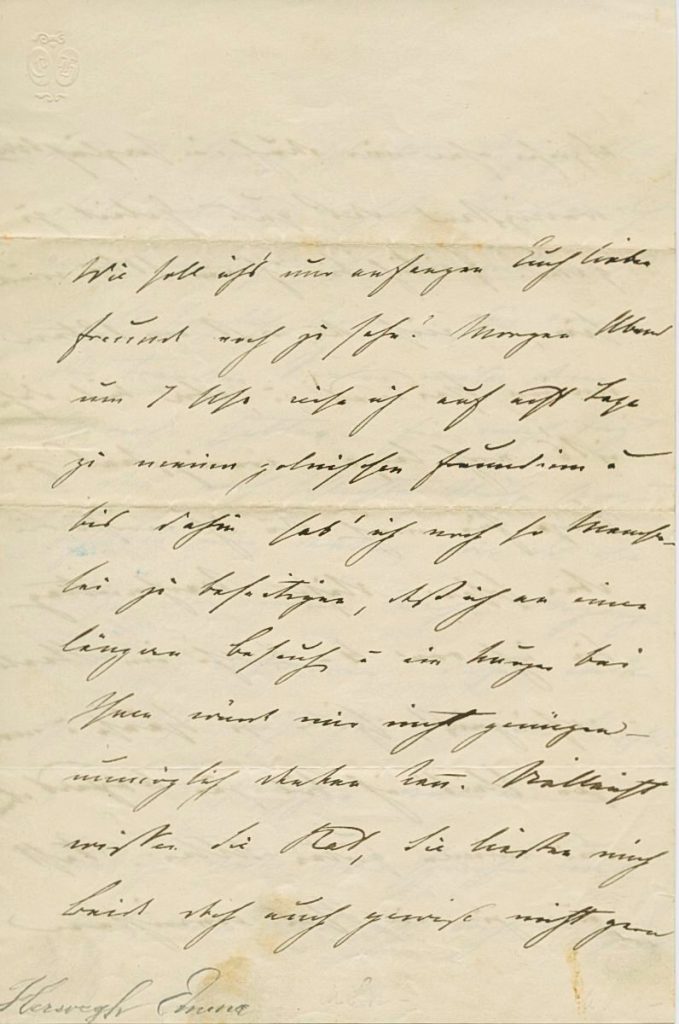 Wie soll ich's nur anfangen Euch liebe
Freunde noch zu sehn? Morgen Abend
um 7 Uhr reise ich auf acht Tage
zu meinen polnischen Freunden u
bis dahin hab' ich noch so Mancher-
lei zu beseitigen, daß ich an einen
längern Besuch, u ein kurzer bei
Ihnen würde mir nicht genügen –
unmöglich denken kan̅. Vielleicht
wissen Sie Rat, Sie ließen mich
beide doch auch gewiß nicht gern
Herwegh Emma